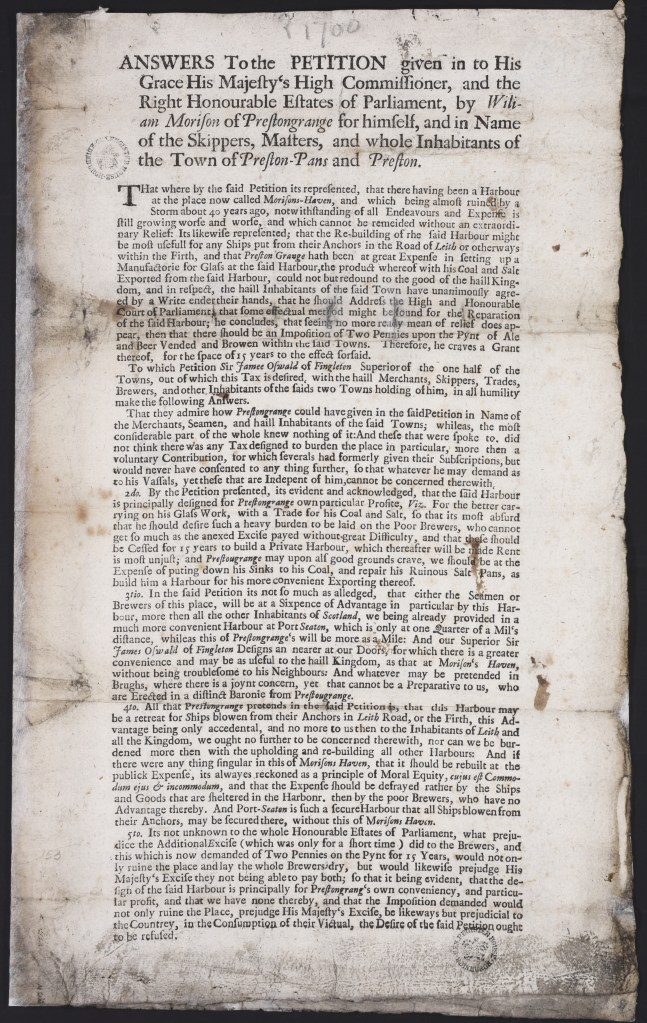 1700
ANSWERS To the PETITION given in to His
Grace His Majeſty's High Commiſſioner, and the
Right Honourable Eſtates of Parliament, by Wili-
am Moriſon of Preſtongrange for himſelf, and in Name
of the Skippers, Maſters, and whole Inhabitants of
the Town of Preſton-Pans and Preſton.
THat where by the ſaid Petition its repreſented, that there having been a Harbour
at the place now called Moriſons-Haven, and which being almoſt ruined by a
Storm about 40 years ago, notwithſtanding of all Endeavours and Expenſe is
ſtill growing worſe and worſe, and which cannot be remeided without an extraordi-
nary Relief: Its likewiſe repreſented; that the Re-building of rhe ſaid Harbour might
be moſt uſefull for any Ships put from their Anchors in the Road of Leith or otherways
within the Firth, and that Preſton Grauge hath been at great Expenſe in ſetting up a
Manufactorie for Glaſs at the ſaid Harbour,the product whereof with his Coal and Salt
Exported from the ſaid Harbour, could not but redound to the good of the haill King-
dom, and in reſpect, the haill Inhabitants of the ſaid Town have unanimouſly agre-
ed by a Write ender their hands, that he ſhould Addreſs the High and Honourable
Court of Parliament, that ſome effectual might be found for the Reparation
of the ſaid Harbour; he concludes, that ſeeing no more ready mean of relief does ap-
pear, then that there ſhould be an Impoſition of Two Pennies upon the Pynt of Ale
and Beer Vended and Browen within the ſaid Towns. Therefore, he craves a Grant
thereof, for the ſpace of 15 years to the effect forſaid.
To which Petition Sir Jamee Oſwald of Fingleton Superior of the one half of the
Towns, out of which this Tax is deſired, with the haill Merchants, Skippers, Trades,
Brewers, and other Inhabitants of the ſaids two Towns holding of him, in all humility
make the following Anſwers.
That they admire how Preſtongrange could have given in the ſaid Petition in Name of
the Merchants, Seamen, and haill Inhabitants of the ſaid Towns; whileas, the moſt
conſiderable part of the whole knew nothing of it: And theſe that were ſpoke to, did
not think there was any Tax deſigned to burden the place in particular, more then a
voluntary Contribution, for which ſeverals had formerly given their Subſcriptions, but
would never have conſented to any thing further, ſo that whatever he may demand as
to his Vaſſals, yet theſe that are Indepent of him, cannot be concerned therewith.
2do. By the Petition preſented, its evident and acknowledged, that the ſaid Harbour
is principally deſigned for Preſtongrange own particular Profite, Viz. For the better car-
rying on his Glaſs Work, with a Trade for his Coal and Salt, ſo that its moſt abſurd
that he ſhould deſire ſuch a heavy burden to be laid on the Poor Brewers, who cannot
get ſo much as the anexed Exciſe payed without great Difficulty, and that theſe ſhould
be Ceſſed for 15 years to build a Private Harbour, which thereafter will be made Rent
is moſt unjuſt; and Preſtougrange may upon alſ good grounds crave, we ſhould be at the
Expenſe of puting down his Sinks to his Coal, and repair his Ruinous Salt Pans, as
build him a Harbour for his more convenient Exporting thereof.
3tio. In the ſaid Petition its not ſo much as alledged, that either the Seamen or
Brewers of this place, will be at a Sixpence of Advantage in particular by this Har-
bour, more then all the other Inhabitants of Scotland, we being already provided in a
much more convenient Harbour at Port Seaton, which is only at one Quarter of a Mil's
diſtance, whileas this of Preſtongrange's will be more as a Mile: And our Superior Sir
James Oſwald of Fingleton Deſigns an nearer at our Doors, for which there is a greater
convenience and may be as uſeful to the haill Kingdom, as that at Moriſon's Haven,
without being troubleſome to his Neighbours: And whatever may be pretended in
Brughs, where there is a joynt concern, yet that cannot be a Preparative to us, who
are Erected in a diſtinct Baronie from Preſtougrange.
4to. All that Preſtongrange pretends in the ſaid Petition is, that this Harbour may
be a retreat for Ships blowen from their Anchors in Leith Road, or the Firth, this Ad-
vantage being only accedental, and no more to us then to the Inhabitants of Leith and
all the Kingdom, we ought no further to be concerned therewith, nor can we be bur-
dened more then with the upholding and re-building all other Harbours: And if
there were any thing ſingular in this of Moriſons Haven, that it ſhould be rebuilt at the
publick Expenſe, its alwayes reckoned as a principle of Moral Equity, cujus eſt Commo-
dum ejus & incommodum, and that the Expenſe ſhould be defrayed rather by the Ships
and Goods that are ſheltered in the Harbonr. then by the poor Brewers, who have no
Advantage thereby. And Port-Seaton is ſuch a ſecure Harbour that all Ships blowen from
their Anchors, may be ſecured there, without this of Moriſons Haven.
5to. Its not unknown to the whole Honourable Eſtates of Parliament, what preju-
dice the Additional Exciſe (which was only for a ſhort time) did to the Brewers, and
this which is now demanded of Two Pennies on the Pynt for 15 Years, would not on-
ly ruine the place and lay the whole Brewers dry, but would likewiſe prejudge His
Majeſty's Exciſe they not being able to pay both; ſo that it being evident, that the de-
ſign of the ſaid Harbour is principally for Preſtongrang's own conveniency, and particu-
lar profit, and that we have none thereby, and that the Impoſition demanded would
not only ruine the Place, prejudge His Majeſty's Exciſe, be likeways but prejudicial to
the Countrey, in the Conſumption of their Victual, the Deſire of the ſaid Petition ought
to be refuſed.
153